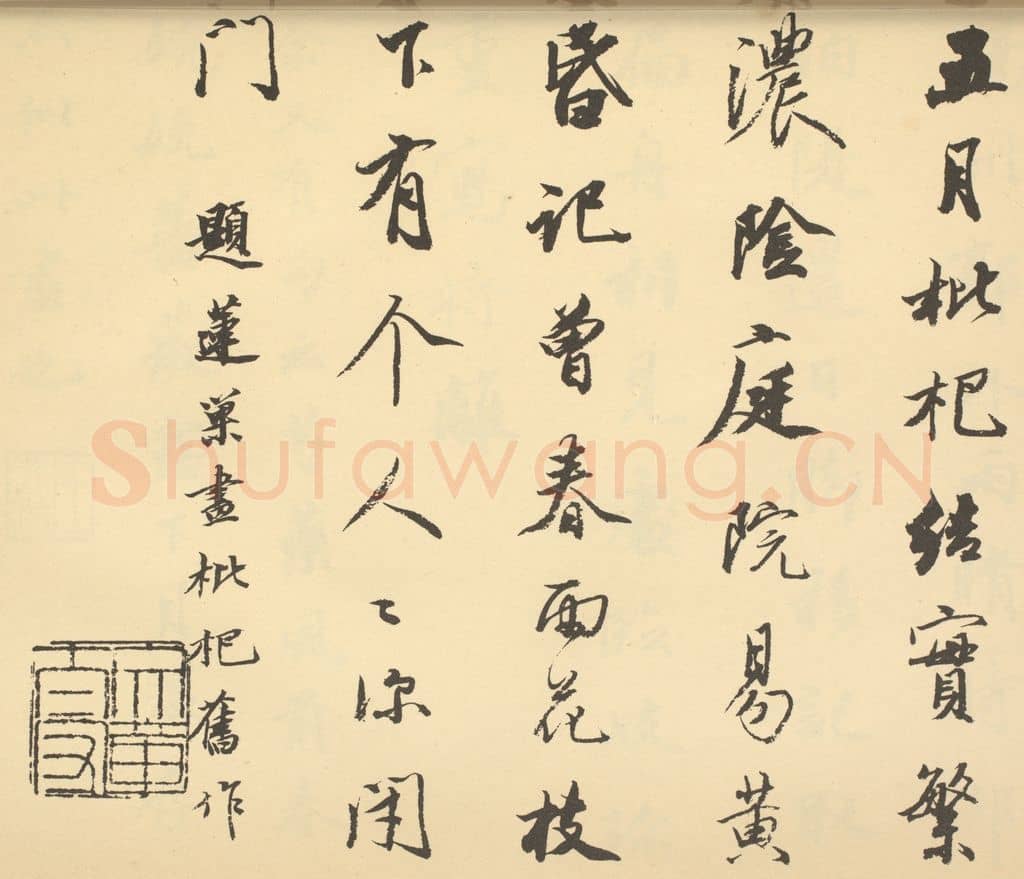 五月枇杷结實繁
濃陰庭院易黄
昏記曾春雨花枝
下有个人々深闭
门
題蓮巢畫枇杷舊作
Shufawang.CN